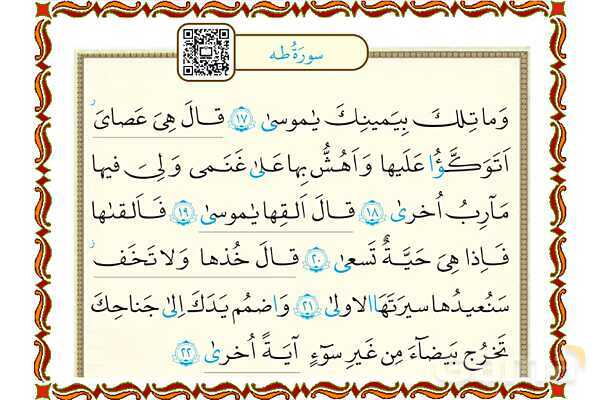 سورَةُ طه
وَ ما تِلكَ بِيَمينِكَ يٰموسىٰ ١٧ قالَ هِىَ عَصاىَ
اَتَوَكَّؤُا عَلَيها وَ اَهُشُّ بِها عَلىٰ غَنَمى وَ لِىَ فيها
مَآرِبُ اُخرىٰ ١٨ قالَ اَلقِها يٰموسىٰ ١٩ فَاَلقىٰها
فَاِذا هِىَ حَيَّةٌ تَسعىٰ ٢٠ قالَ خُذها وَ لا تَخَف
سَنُعيدُها سيرَتَهَا الاولىٰ ٢١ وَ اضمُم يَدَكَ اِلىٰ جَناحِكَ
تَخرُج بَيضاءَ مِن غَيرِ سوءٍ آيَةً اُخرىٰ ٢٢